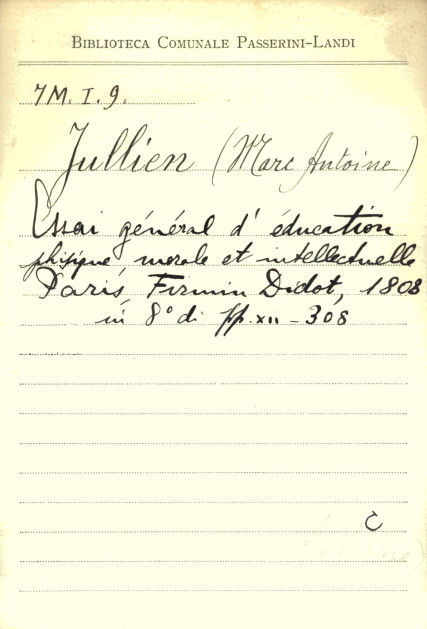 BIBLIOTECA COMUNALE PASSERINI-LANDI
7M. I. 9.
Jullien (Marc Antoine)
Essai général d' éducation
phisique morale et intellectuelle
Paris, Firmin Didot, 1808
in 8° di pp. XII - 308
C